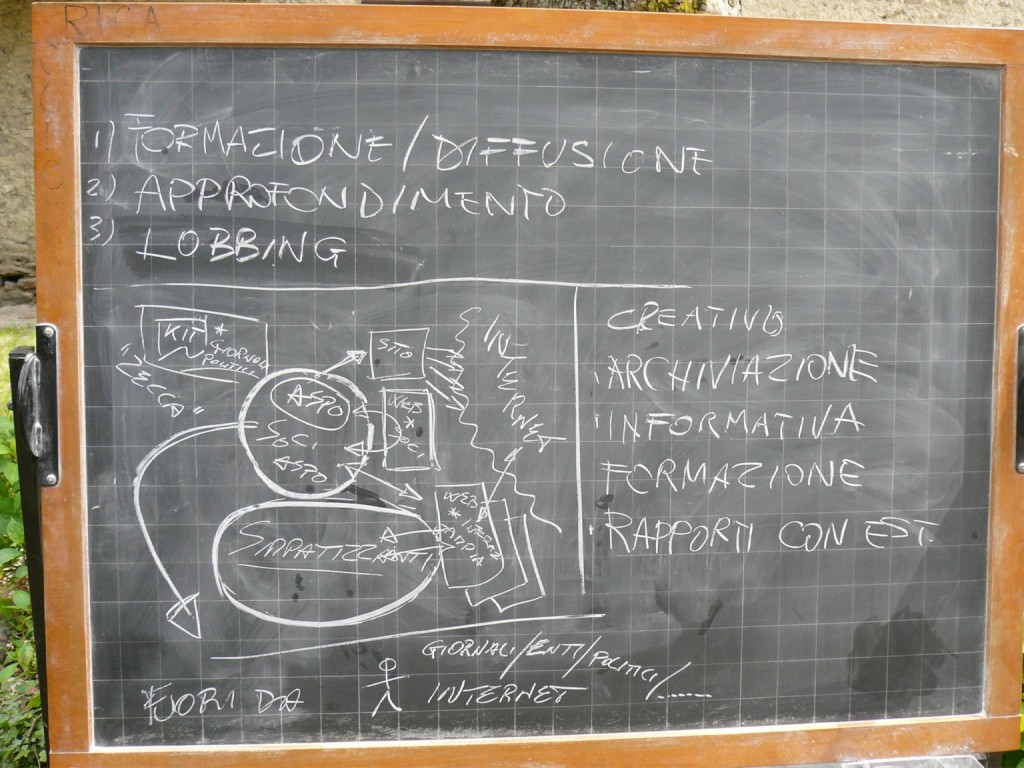 RICA
1) FORMAZIONE/DIFFUSIONE
2) APPROFONDIMENTO
3) LOBBING
KIT *
GIORNALI
POLITICI
ASPO
SOCI
ASPO
STO
WEB
*
SOCI
INTERNET
WEB
*
SIMPATIZZANTI
CREATIVO
ARCHIVIAZIONE
INFORMATIVA
FORMAZIONE
RAPPORTI CON EST.
GIORNALI/ENTI/POLITICI/......
FUORI DA INTERNET